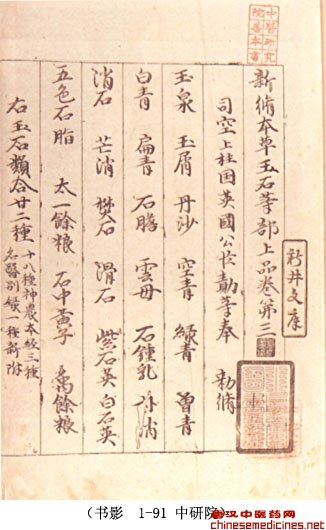 中醫研究
院善本書
新脩本草玉石等部上品卷第三
新井文庫
司空上柱国英國公臣勣等奉 勅脩
玉泉 玉屑 丹沙 空青 綠青 曾青
白青 扁青 石膽 雲母 石鍾乳 朴消
消石 芒消 礬石 滑石 紫石英 白石英
五色石脂 太一餘粮 石中黃子 禹餘粮
右玉石類合廿二種 十八種神農本經三種
名醫別錄一種新附
（书影 1-91 中研院）
武汉中医药网
chinesemedicines.net